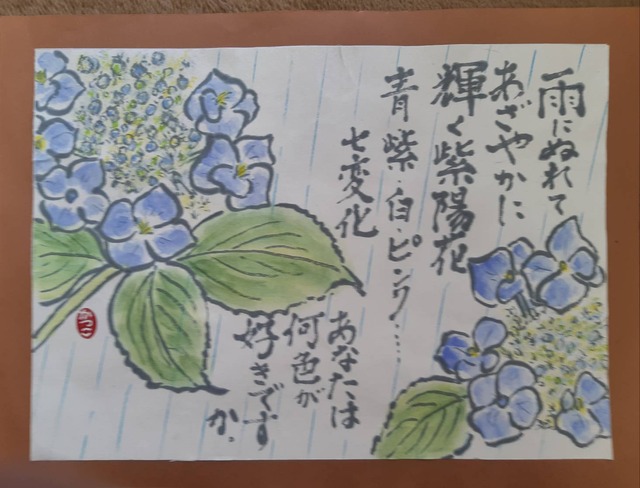 雨にぬれて
あざやかに
輝く紫陽花
青 紫 白 ピンク……
七変化
あなたは
何色が
好きです
か。
かつこ